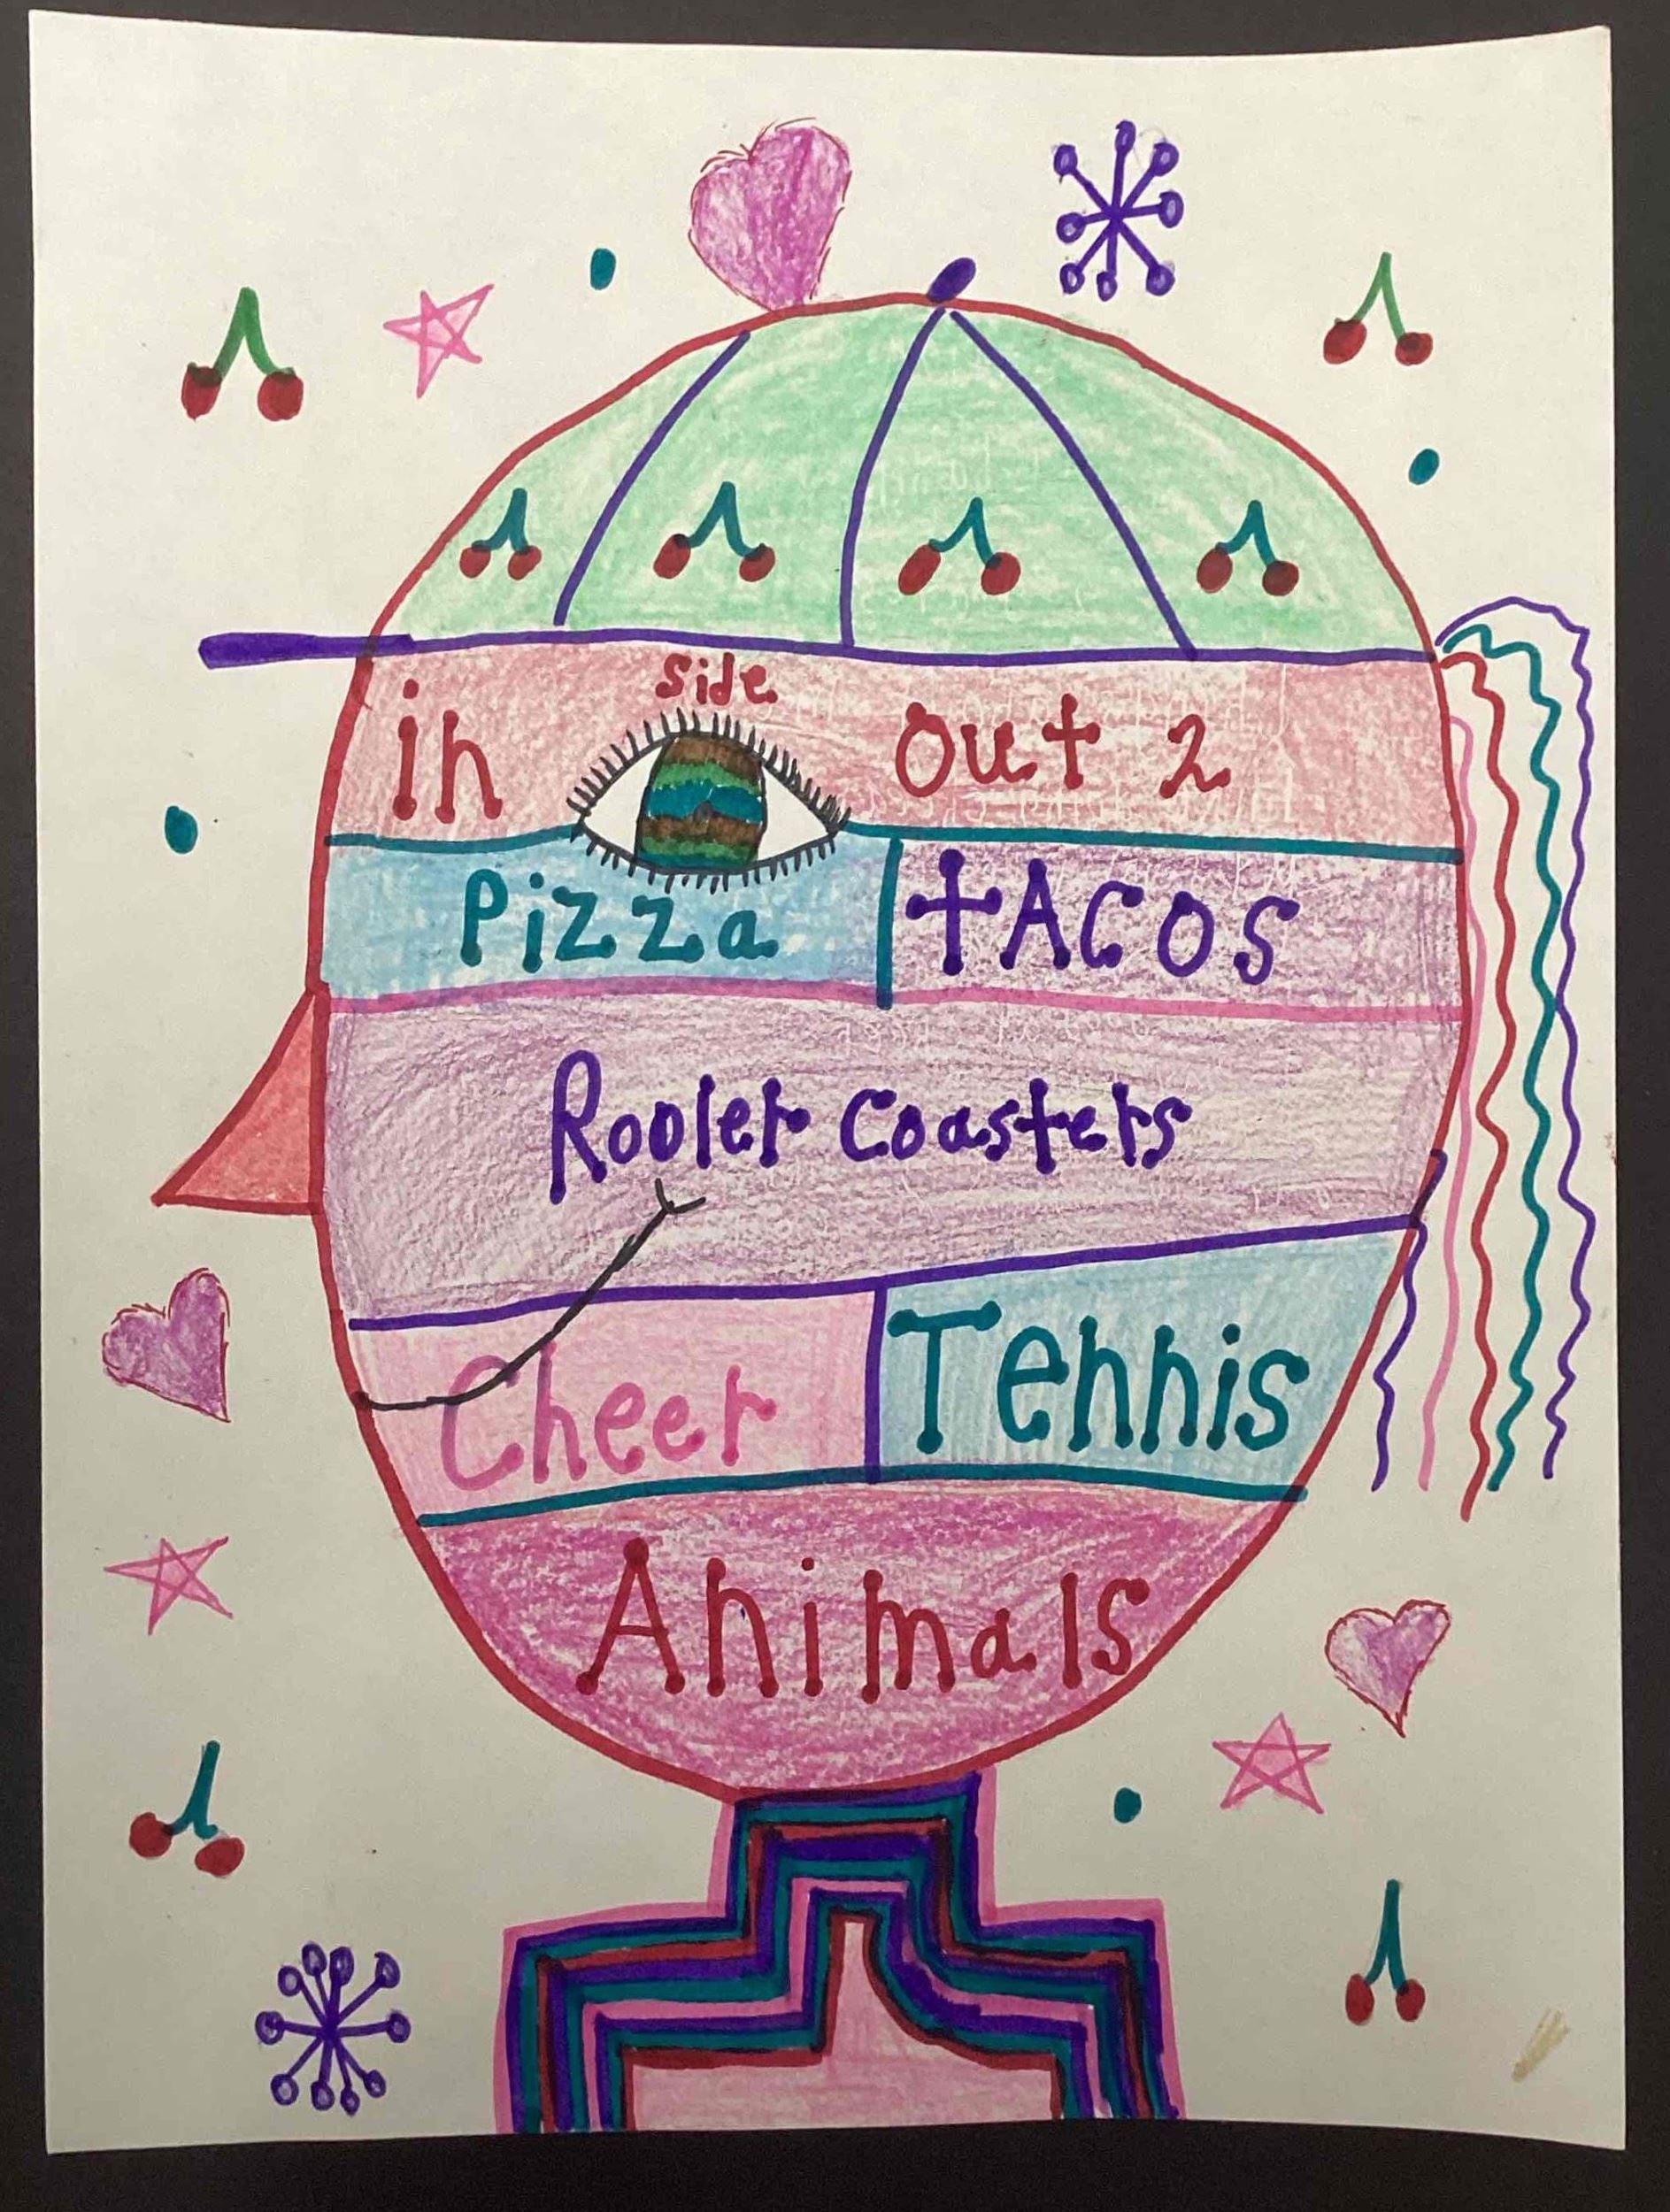 in side out 2
Pizza tACOS
Rooler Coasters
Cheer Tennis
Animals